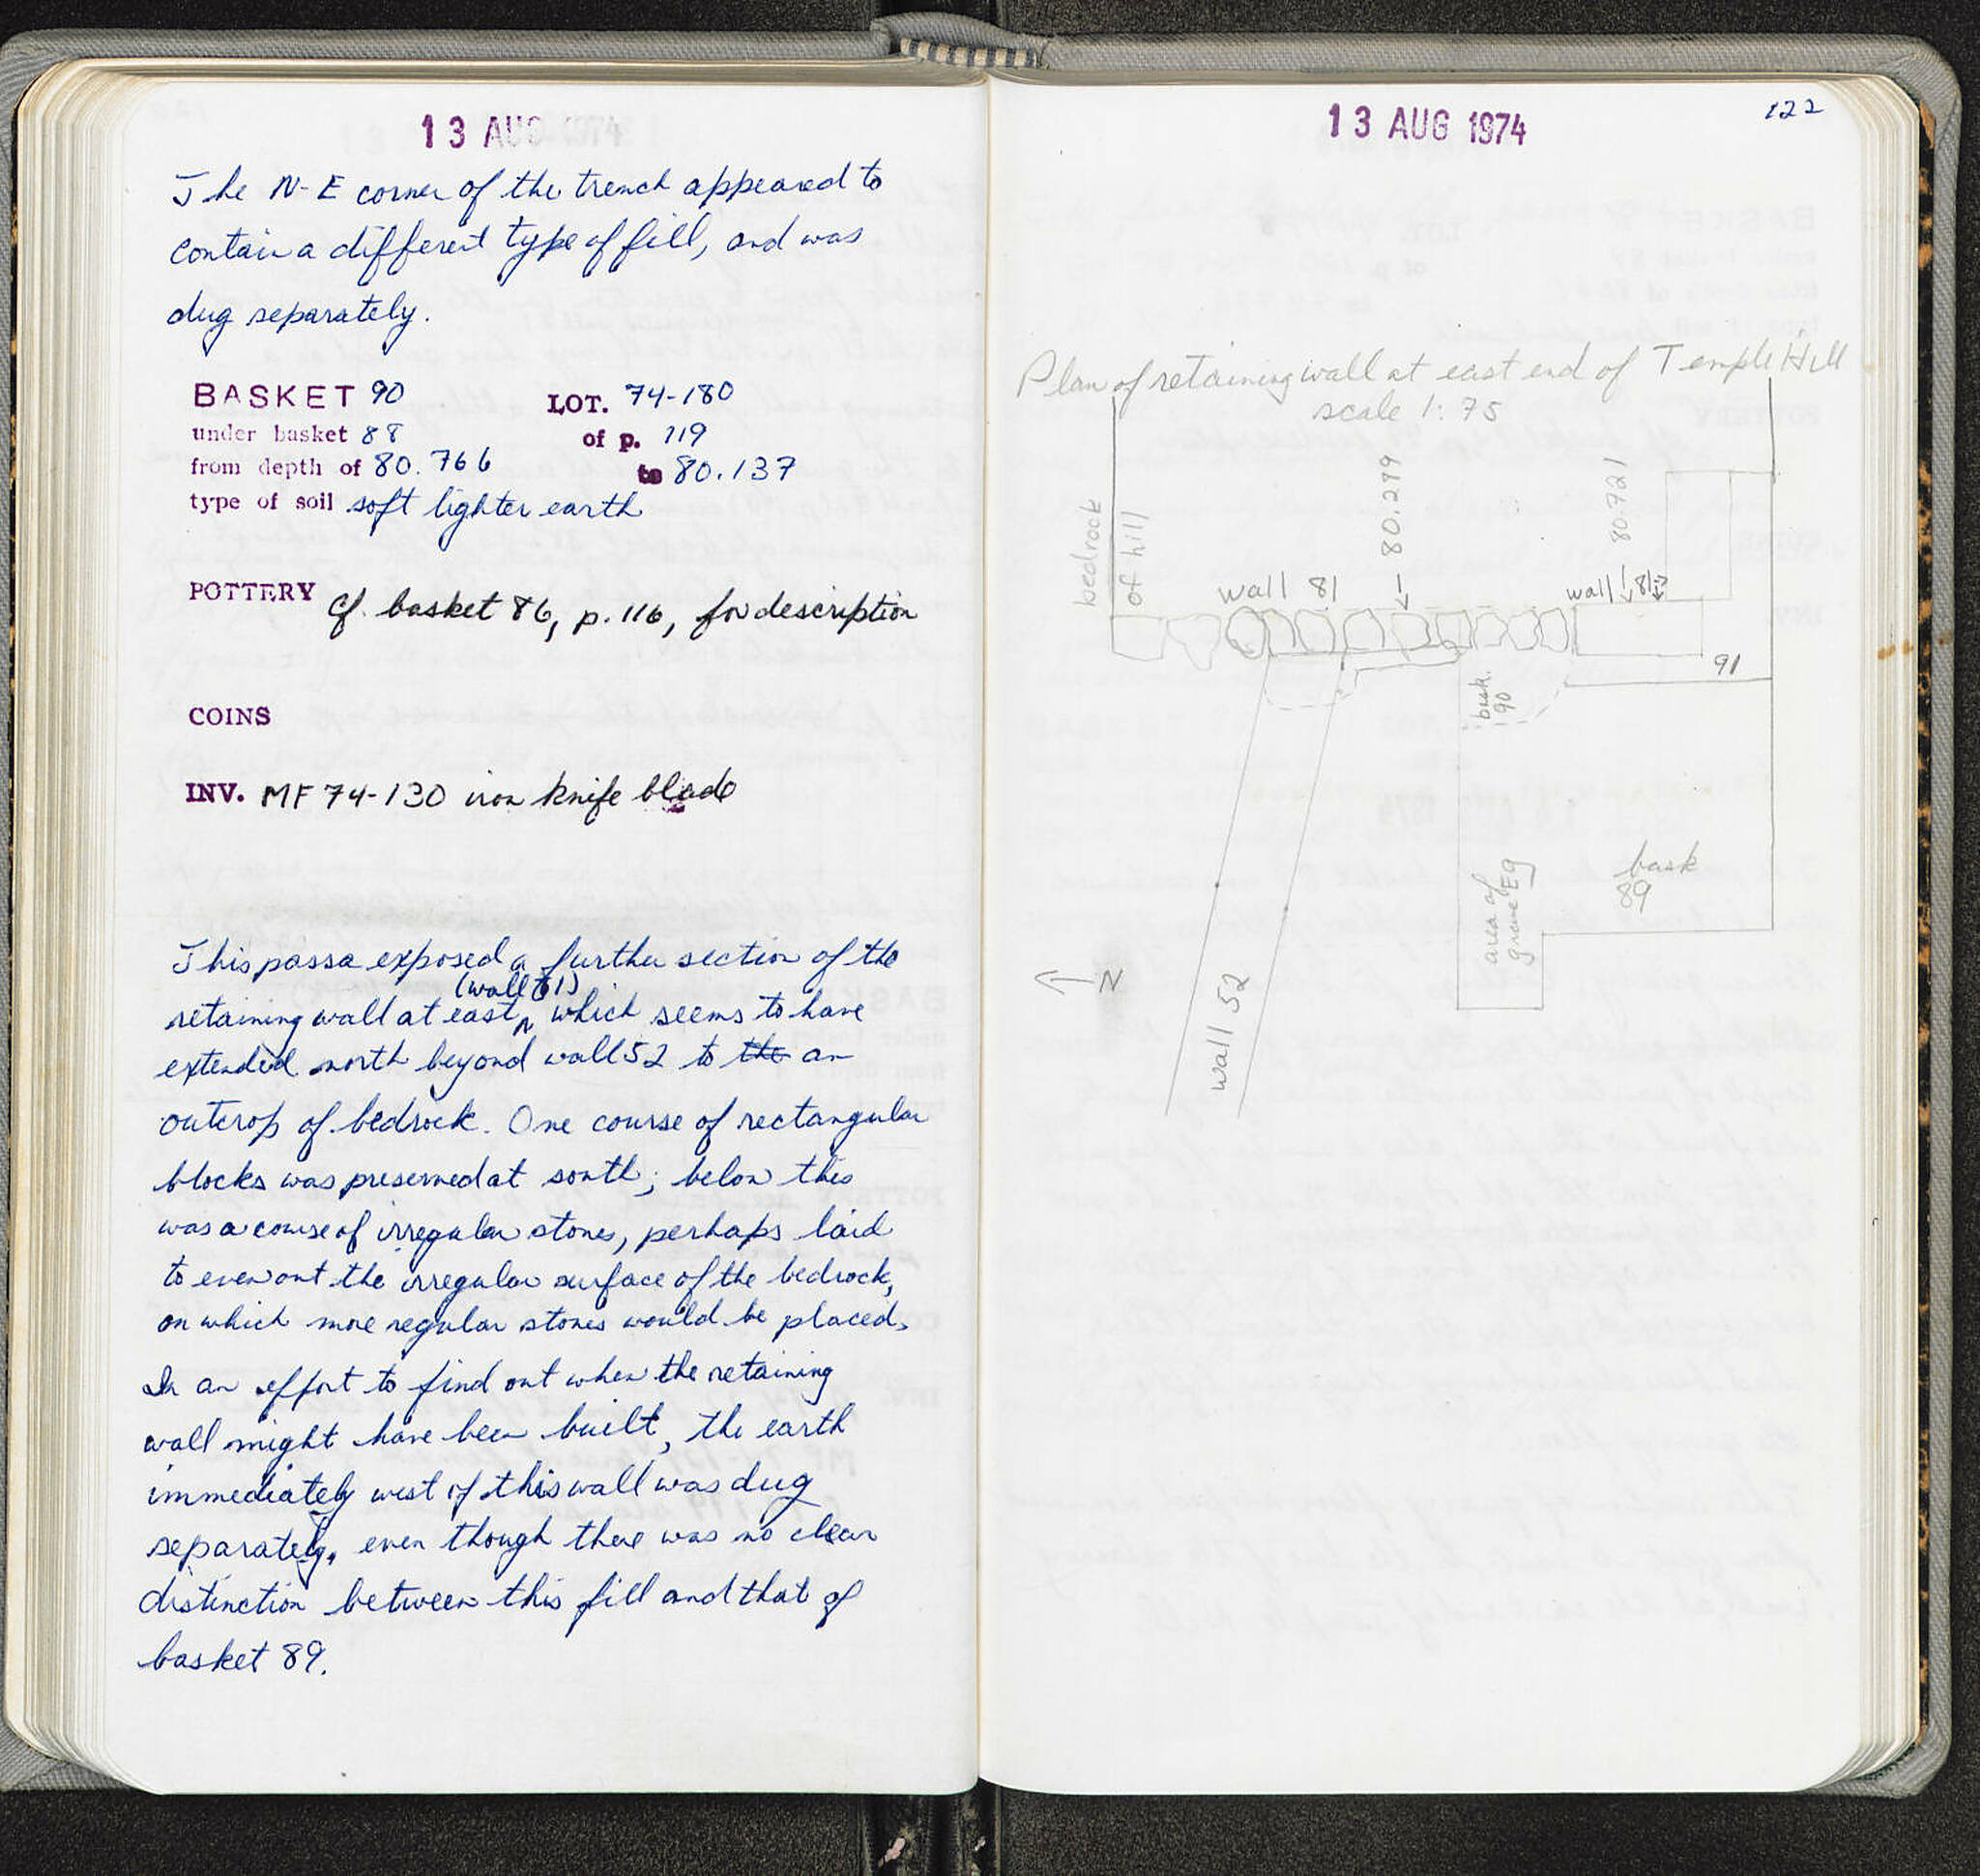 13 AUG 1974
The N-E corner of the trench appeared to
contain a different type of fill, and was
dug separately.
BASKET 90 LOT. 74-180
under basket 88 of p. 119
from depth of 80.766 to 80.137
type of soil soft lighter earth
POTTERY cf. basket 86, p. 116, for description
COINS
INV. MF 74-130 iron knife blade
This passa exposed a further section of the
(wall 81)
retaining wall at east, which seems to have
extended north beyond wall 52 to the an
outcrop of bedrock. One course of rectangular
blocks was preserved at south; below this
was a course of irregular stones, perhaps laid
to even out the irregular surface of the bedrock,
on which more regular stones would be placed.
In an effort to find out when the retaining
wall might have been built, the earth
immediately west of this wall was dug
separately, even though there was no clear
distinction between this fill and that of
basket 89.
13 AUG 1974
122
Plan of retaining wall at east end of Temple Hill
scale 1:75
bedrock
of hill
80.299
80.721
wall 81
wall 81
91
bask.
90
bask
89
area of
grave E9
N
wall 52